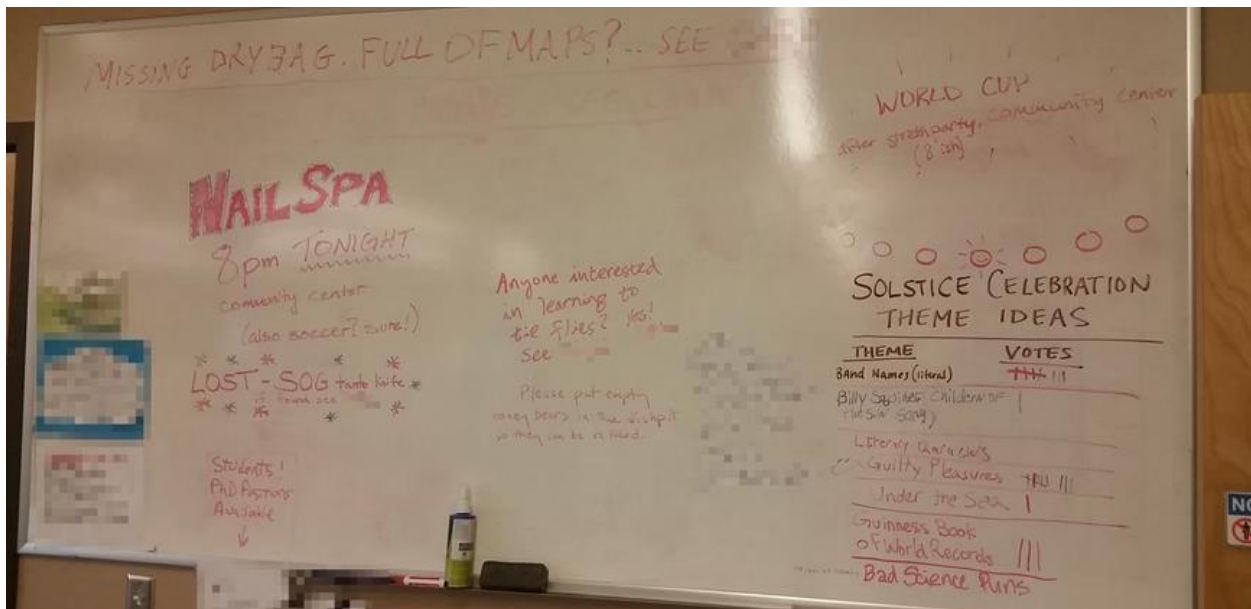 MISSING DRYBAG. FULL OF MAPS?.. SEE
WORLD CUP
after stretch party, community center
(8 ish)
NAIL SPA
8pm TONIGHT
community center
(also soccer? sure!)
LOST - SOG tanto knife
if found see
Students!
PhD Positions
Available
Anyone interested
in learning to
tie flies? Yes!
see
Please put empty
honey bears in the dishpit
so they can be refilled.
SOLSTICE CELEBRATION
THEME IDEAS
THEME VOTES
BAND NAMES (literal)
Billy Squires Children OF
the Sun
Literary Characters
Guilty Pleasures
Under the Sea
Guinness Book
of World Records
Bad Science Puns
NO